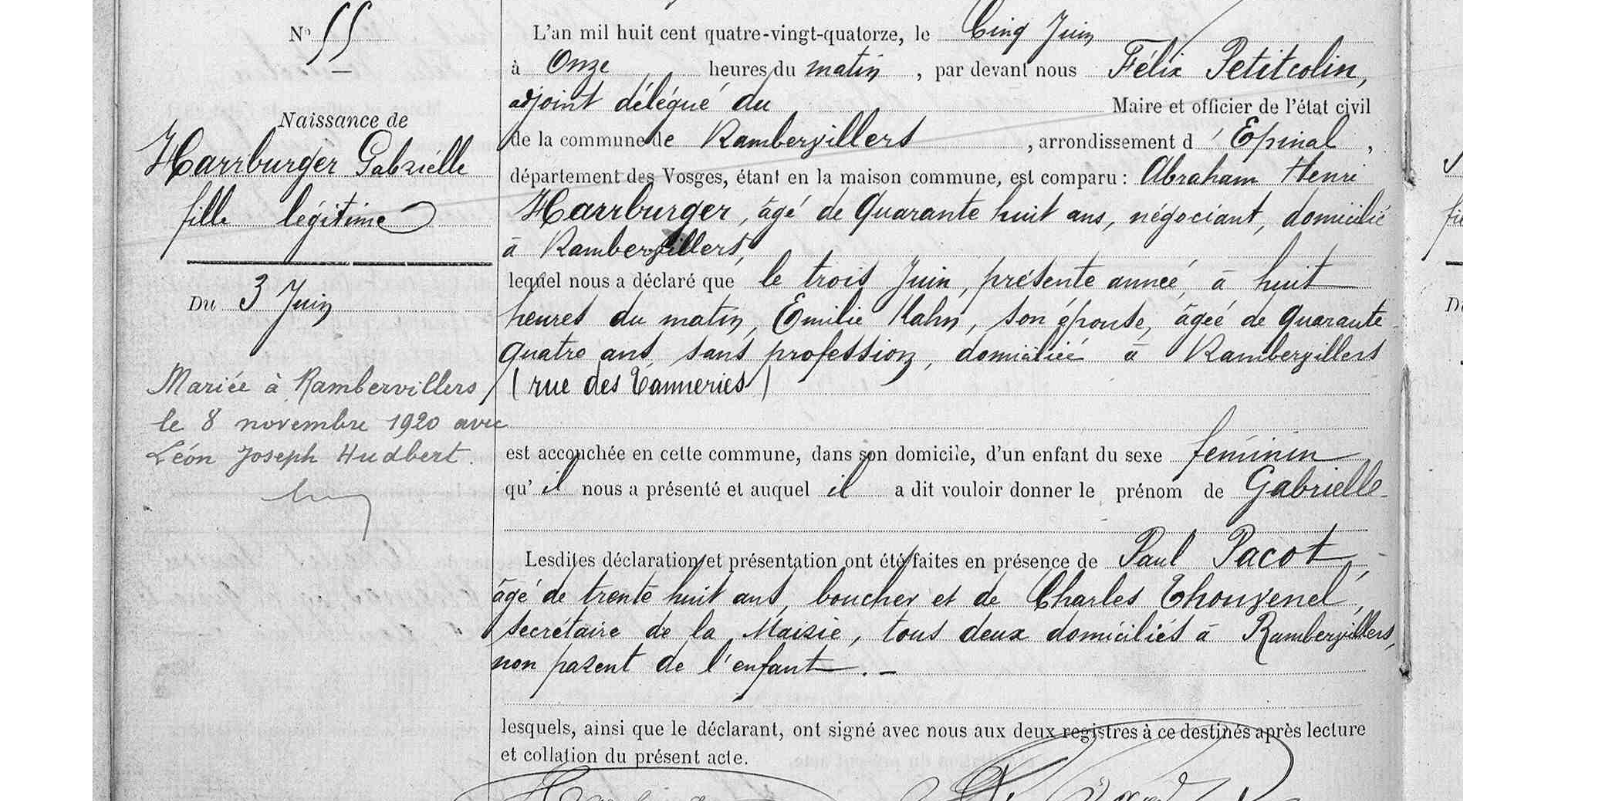 N° 55
Naissance de
Harrburger Gabrielle
fille légitime
Du 3 Juin
Mariée à Rambervillers
le 8 novembre 1920 avec
Léon Joseph Hudbert.
L'an mil huit cent quatre-vingt-quatorze, le Cinq Juin
à Onze heures du matin, par devant nous Félix Petitcolin,
adjoint délégué du Maire et officier de l'état civil
de la commune de Rambervillers, arrondissement d'Epinal,
département des Vosges, étant en la maison commune, est comparu : Abraham Henri
Harrburger, âgé de Quarante huit ans, négociant, domicilié
à Rambervillers,
lequel nous a déclaré que le trois Juin, présente année, à huit
heures du matin, Emilie Kahn, son épouse, âgée de Quarante
quatre ans, sans profession, domiciliée à Rambervillers
(rue des Tanneries)
est accouchée en cette commune, dans son domicile, d'un enfant du sexe féminin
qu'il nous a présenté et auquel il a dit vouloir donner le prénom de Gabrielle
Lesdites déclaration et présentation ont été faites en présence de Paul Pacot,
âgé de trente huit ans, boucher et de Charles Thouvenel,
secrétaire de la Mairie, tous deux domiciliés à Rambervillers,
non parent de l'enfant. —
lesquels, ainsi que le déclarant, ont signé avec nous aux deux registres à ce destinés après lecture
et collation du présent acte.